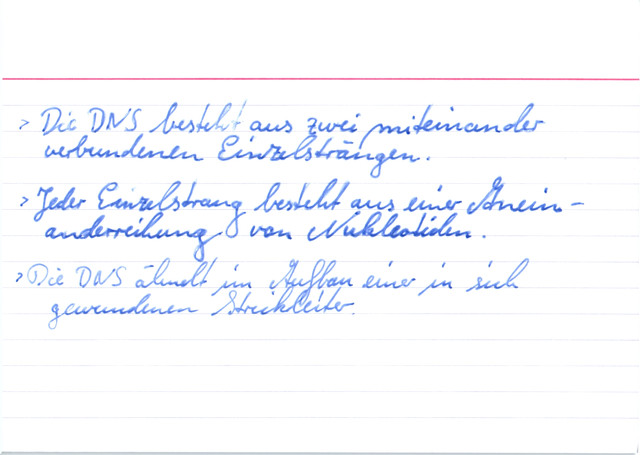 > Die DNS besteht aus zwei miteinander
verbundenen Einzelsträngen.
> Jeder Einzelstrang besteht aus einer Anein-
anderreihung von Nukleotiden.
> Die DNS ähnelt im Aufbau einer in sich
gewundenen Strickleiter.